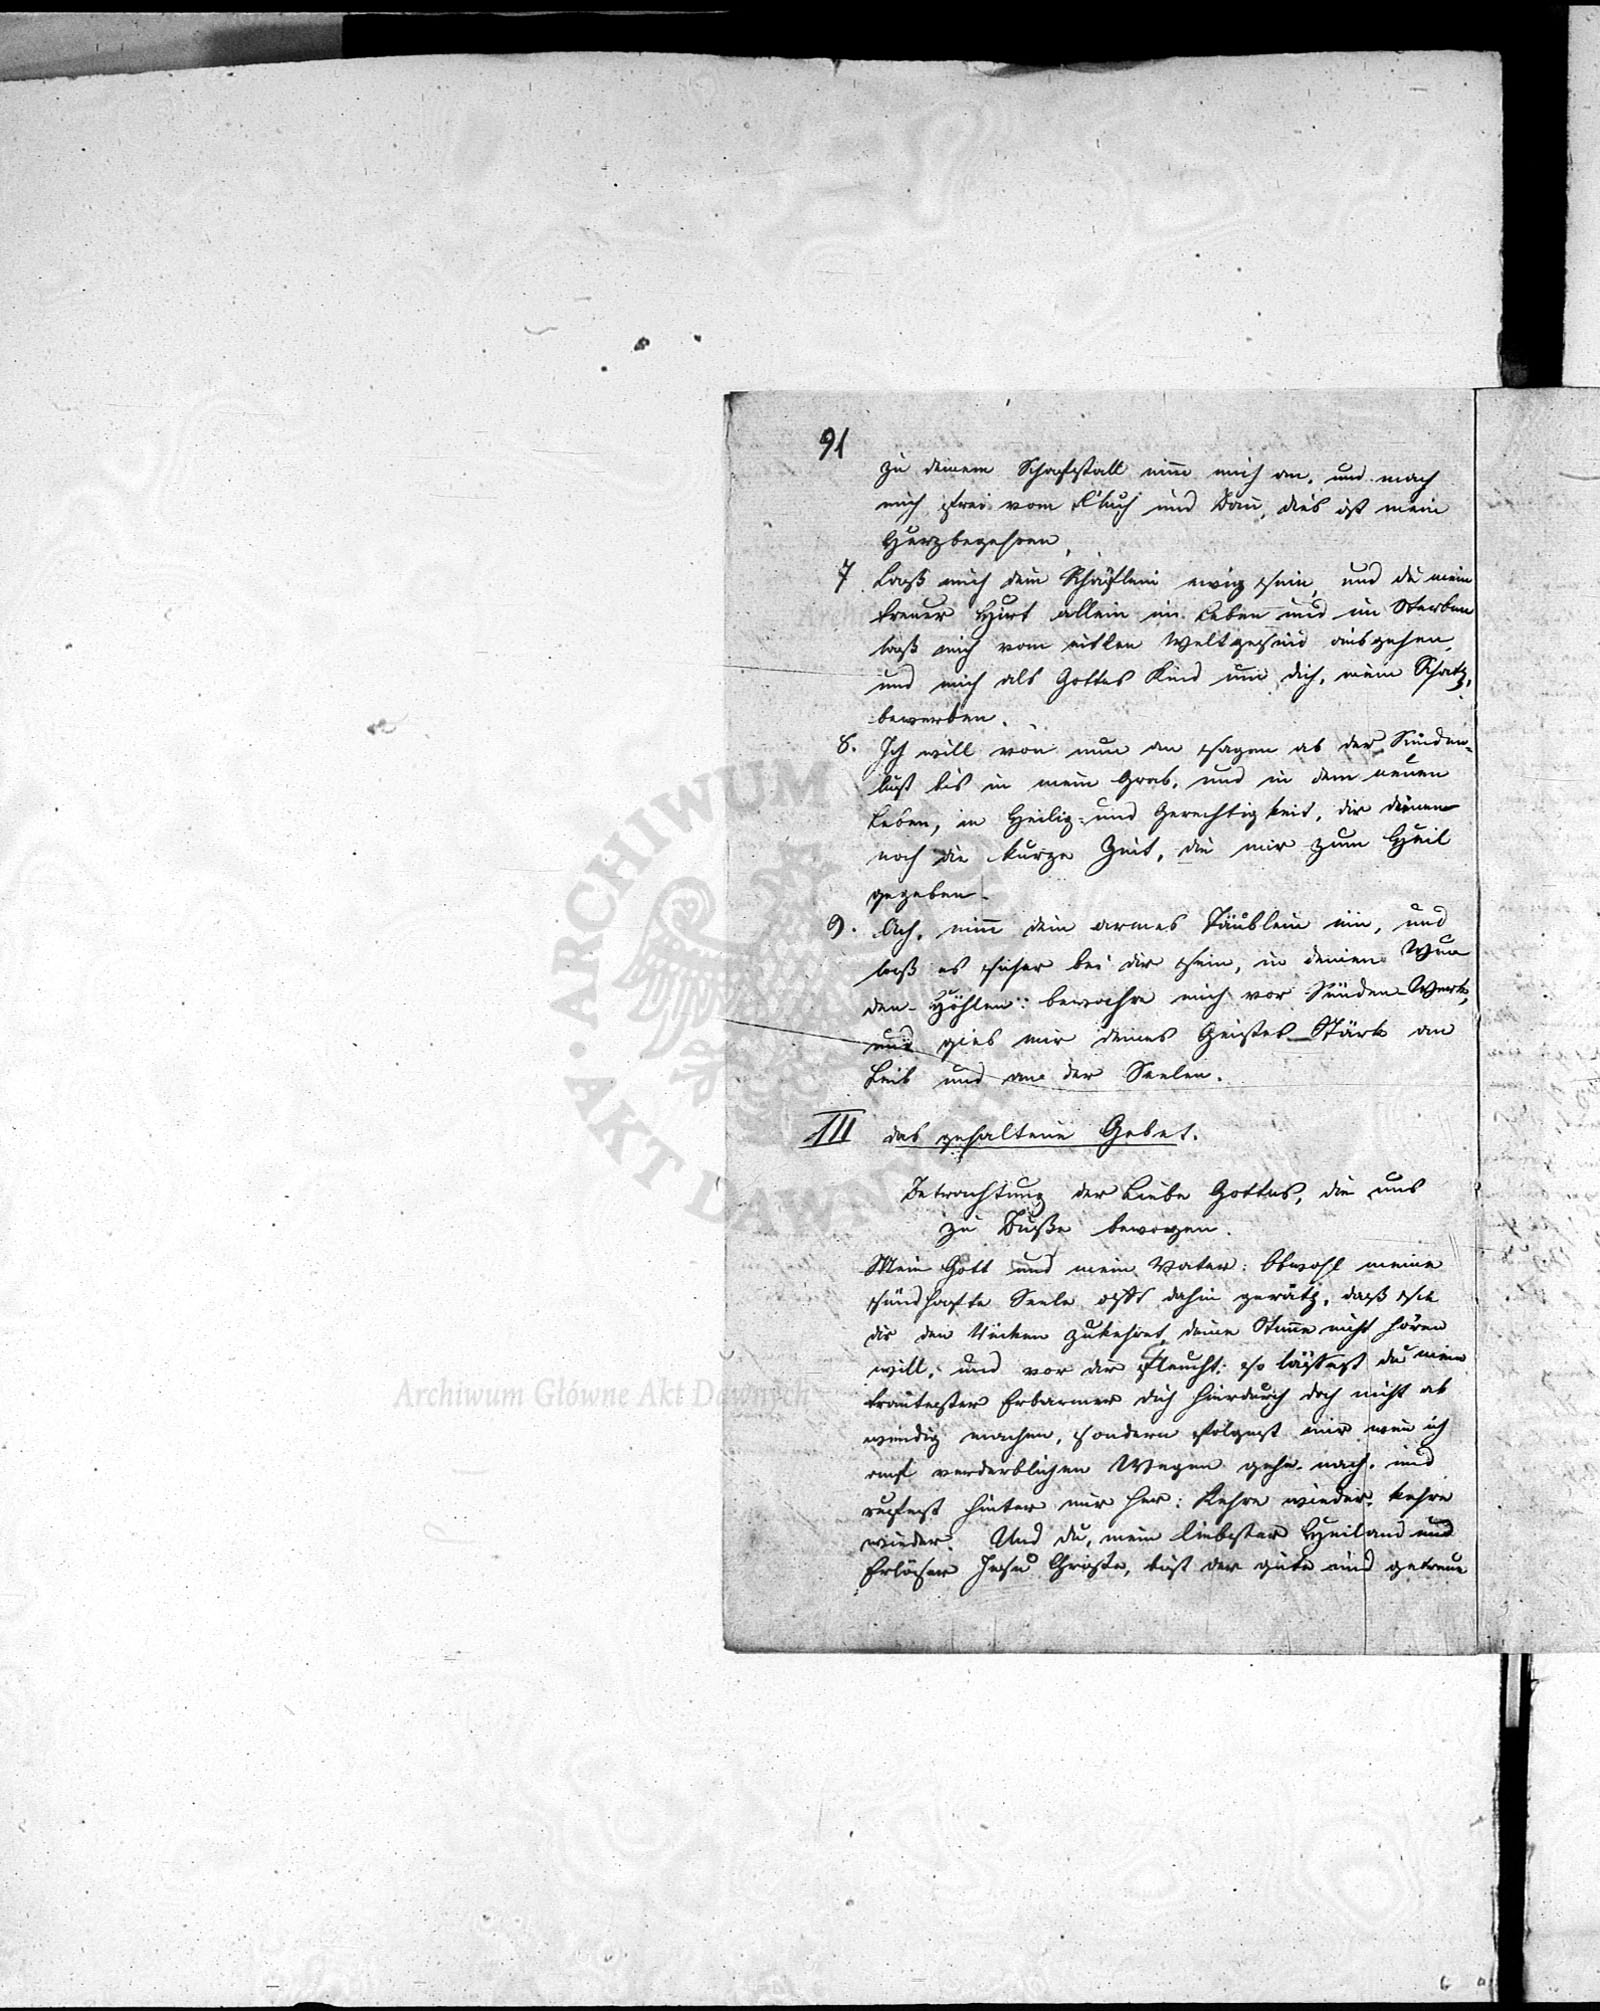 91
zu deinem Schafstall nim̅ mich an, und mach
mich frei vom Fluch und Ban̅, dies ist mein
Herzbegehren,
7 Laß mich dein Schäflein ewig sein, und du mein
treuer Hirt allein im Leben und im Sterben
laß mich vom eitlen Weltgesind ausgehen,
und mich als Gottes Kind um dich, mein Schatz,
bewerben.
8. Ich will von nun an sagen ab der Sünden-
lust bis in mein Grab, und in dem neuen
Leben, in Heilig- und Gerechtigkeit, dir dienen
noch die kurze Zeit, die mir zum Heil
gegeben.
9. Ach, nim̅ dein armes Täublein ein, und
laß es sicher bei dir sein, in deinen Wun
den-Höhlen: bewahre mich vor Sünden-Werk,
und gieb mir deines Geistes Stärk an
Leib und an der Seelen.
III das gehaltene Gebet.
Betrachtung der Liebe Gottes, die uns
zu Buße bewogen.
Mein Gott und mein Vater: Obwohl meine
sündhafte Seele oft dahin geräth, daß sie
dir den Rücken zukehret, deine Stim̅e nicht hören
will, und vor dir fleucht: so lässest du mein
trautester Erbarmer dich hierdurch doch nicht ab
wendig machen, sondern folgest mir wen̅ ich
auf verderblichen Wegen gehe nach, und
rufest hinter mir her: Kehre wieder, kehre
wieder. Und du, mein liebster Heiland und
Erlöser Jesu Christe, bist der gute und getreue
ARCHIWUM
AKT DAWNYCH
Archiwum Główne Akt Dawnych